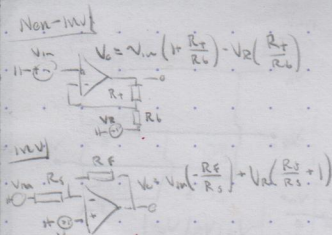 Non-inv
Vin
Vo = Vin (1+ Rf/Rb) - VR (Rf/Rb)
Rf
Rb
VR
inv
RF
Vin
Rs
Vo = Vin (-RF/Rs) + VR (Rf/Rs + 1)